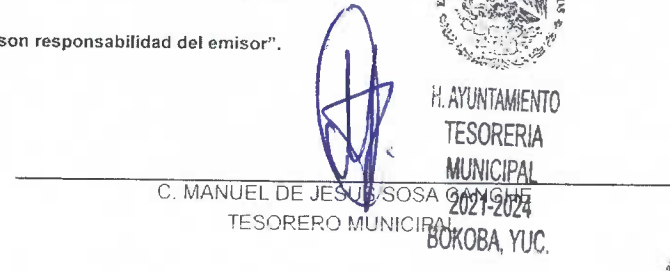 son responsabilidad del emisor".
H. AYUNTAMIENTO
TESORERIA
MUNICIPAL
2021-2024
BOKOBA, YUC.
C. MANUEL DE JESUS SOSA CANCHE
TESORERO MUNICIPAL